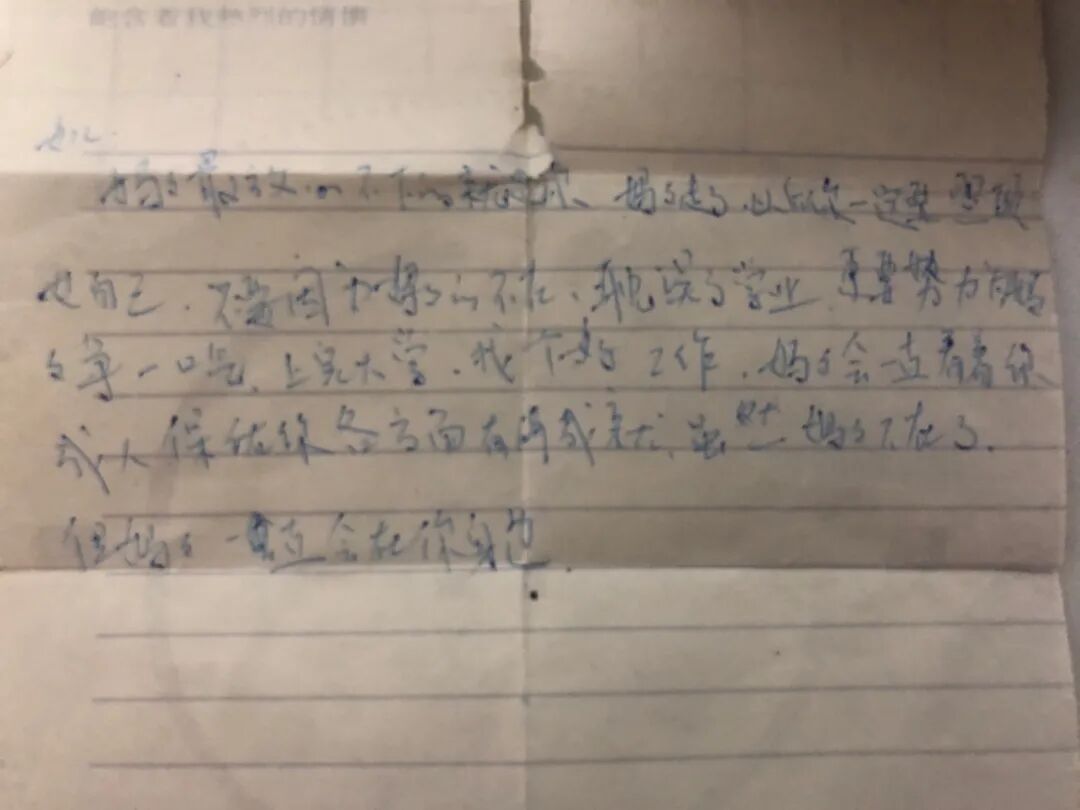 的含着我热烈的情
妈妈最放心不下的就是你、妈妈走了.以后你一定要照顾
自己.不要因为妈妈的不在、耽误了学业.更要努力.为妈妈
争一口气.上完大学.找个好工作.妈妈会一直看着你
成人 保佑你各方面有所成就.虽然妈妈不在了.
但妈妈一直会在你身边.